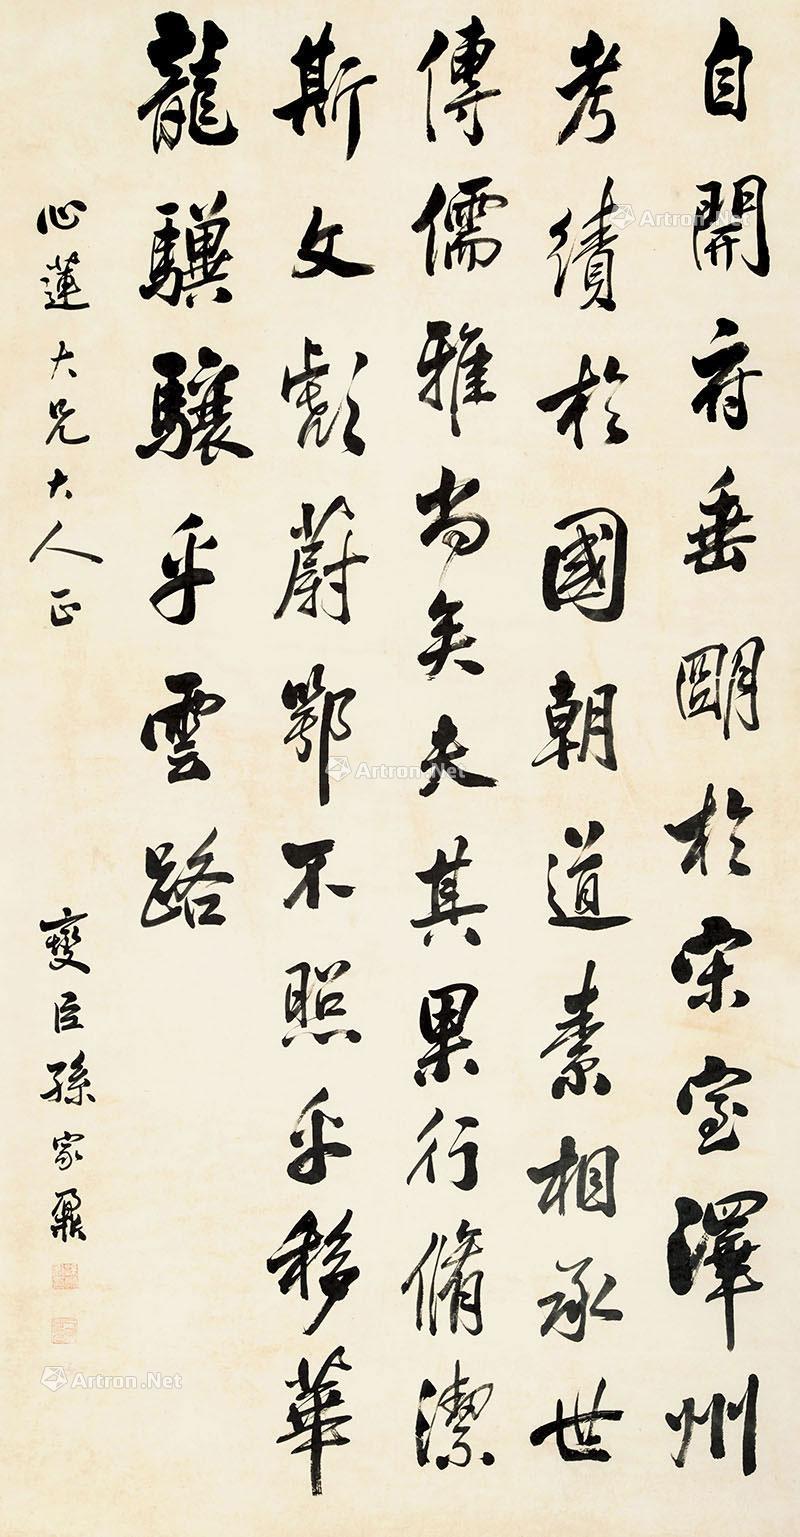 自開府垂朙於宋室澤州
考績於國朝道素相承世
傳儒雅尚矣夫其果行脩潔
斯文彪蔚鄂不照乎移華
龍驥驤乎雲路
心蓮大兄大人正
燮臣孫家鼐
Artron.Net
Artron.Net
Artron.Net